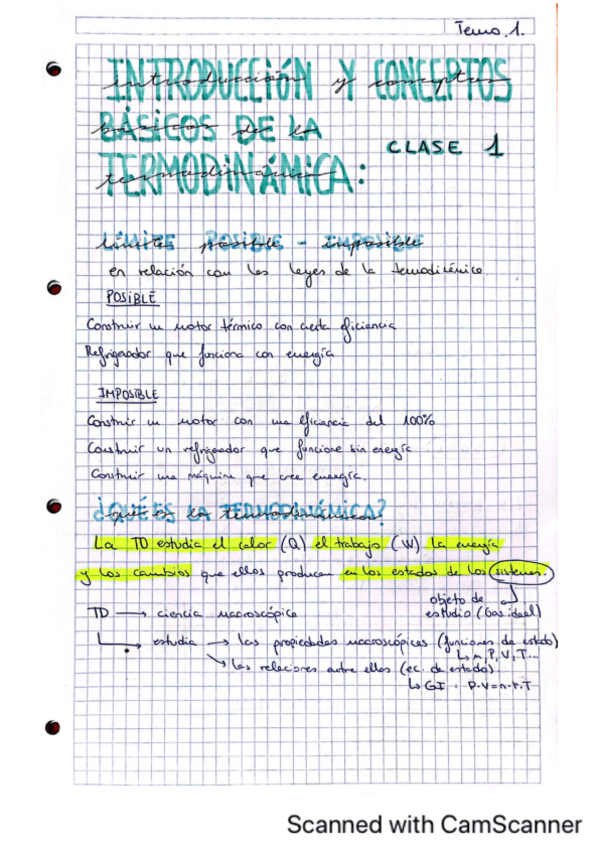 Tema 1.
INTRODUCCIÓN Y CONCEPTOS
BÁSICOS DE LA
CLASE 1
TERMODINÁMICA:
Límites posible - imposible
en relación con las leyes de la termodinámica
POSIBLE
Construir un motor térmico con cierta eficiencia
Refrigerador que funciona con energía
IMPOSIBLE
Construir un motor con una eficiencia del 100%
Construir un refrigerador que funcione sin energía
Construir una máquina que cree energía.
¿QUÉ ES LA TERMODINÁMICA?
La TD estudia el calor (Q) el trabajo (W) la energía
y los cambios que ellos producen en los estados de los sistemas.
objeto de
estudio (Gas ideal)
TD → ciencia macroscópica
estudia → las propiedades macroscópicas (funciones de estado)
↳ n, P, V, T...
↘ las relaciones entre ellas (ec. de estado)
↳ GI : P·V=n·r·T
Scanned with CamScanner